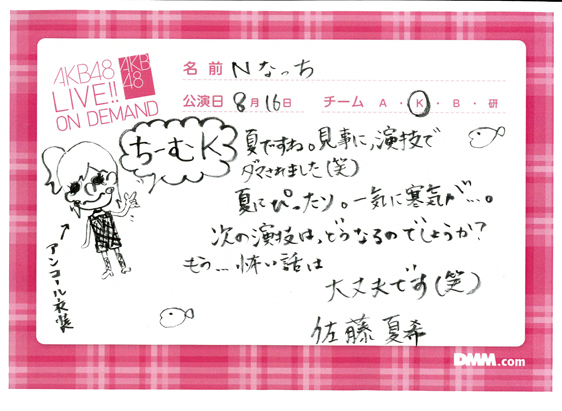 AKB48
LIVE!!
ON DEMAND
AKB
48
名前 Nなっち
公演日 8月16日 チーム A・K・B・研
ちーむK
夏ですね。見事に、演技で
ダマされました(笑)
夏にぴったり。一気に寒気が…。
次の演技は、どうなるのでしょうか?
もう…怖い話は
大丈夫です(笑)
佐藤夏希
アンコール衣装
DMM.com